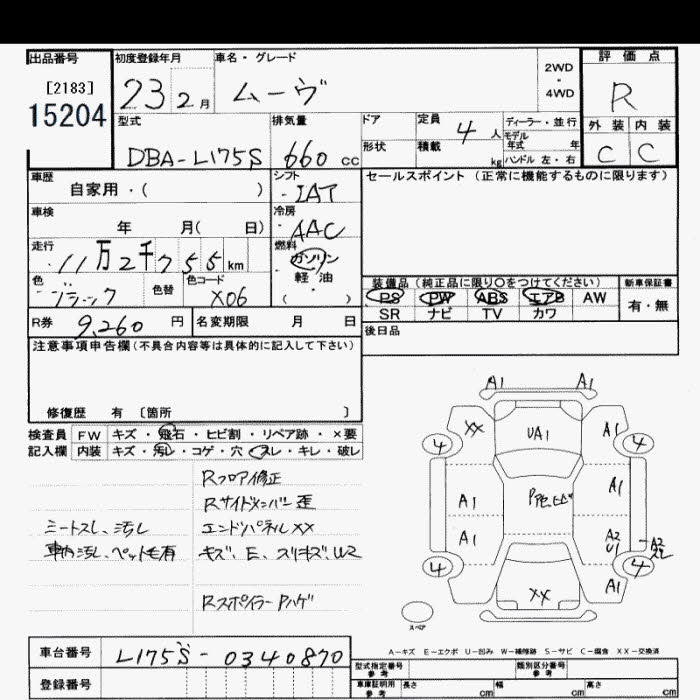 出品番号
[2183]
15204
初度登録年月
23 2月
車名・グレード
ムーヴ
2WD
・
4WD
評価点
R
型式
DBA-L175S
排気量
660 cc
ドア
形状
定員
4 人
積載
kg
ディーラー・並行
モデル
年式 年
ハンドル 左・右
外装 内装
C C
車歴
自家用・( )
シフト
IAT
セールスポイント(正常に機能するものに限ります)
車検
年 月( 日)
冷房
AAC
走行
11万2千755km
燃料
ガソリン
軽油
( )
色
ブラック
色替
色コード
X06
装備品(純正品に限り○をつけてください)
PS PW ABS エアB AW
SR ナビ TV カワ
新車保証書
有・無
R券
9,260 円
名変期限 月 日
後日品
注意事項申告欄(不具合内容等は具体的に記入して下さい)
修復歴 有 〔箇所 〕
検査員 FW キズ・飛石・ヒビ割・リペア跡・×要
記入欄 内装 キズ・汚レ・コゲ・穴・スレ・キレ・破レ
Rフロア修正
Rサイドメンバー歪
シートスレ、汚レ
エンドパネルXX
車内汚レ、ペット毛有
キズ、E、スリキズ、W2
Rスポイラー Pハゲ
A1 A1
XX UA1 A1
4 4
A1 A1
A1 A2
U1
A2
スレ
4 4
XX A1
スペア
A-キズ E-エクボ U-凹み W-補修跡 S-サビ C-腐食 XX-交換済
車台番号
L175S-0340870
登録番号
型式指定番号
参考
類別区分番号
参考
車庫証明用
参考
長さ cm
幅 cm
高さ cm